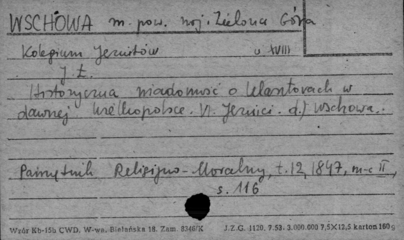 WSCHOWA m. pow. woj. Zielona Góra
Kolegium Jezuitów w XVIII
J. Ł.
Historyczna wiadomość o klasztorach w
dawnej Wielkopolsce. VI. Jezuici. d.) Wschowa.
Pamiętnik Religijno-Moralny, t. 12, 1847, m-c II,
s. 116
Wzór Kb-15b CWD. W-wa, Bielańska 18. Zam. 8346/X J.Z.G. 1120. 7.53. 3.000.000 7,5X12,5 karton 180 g